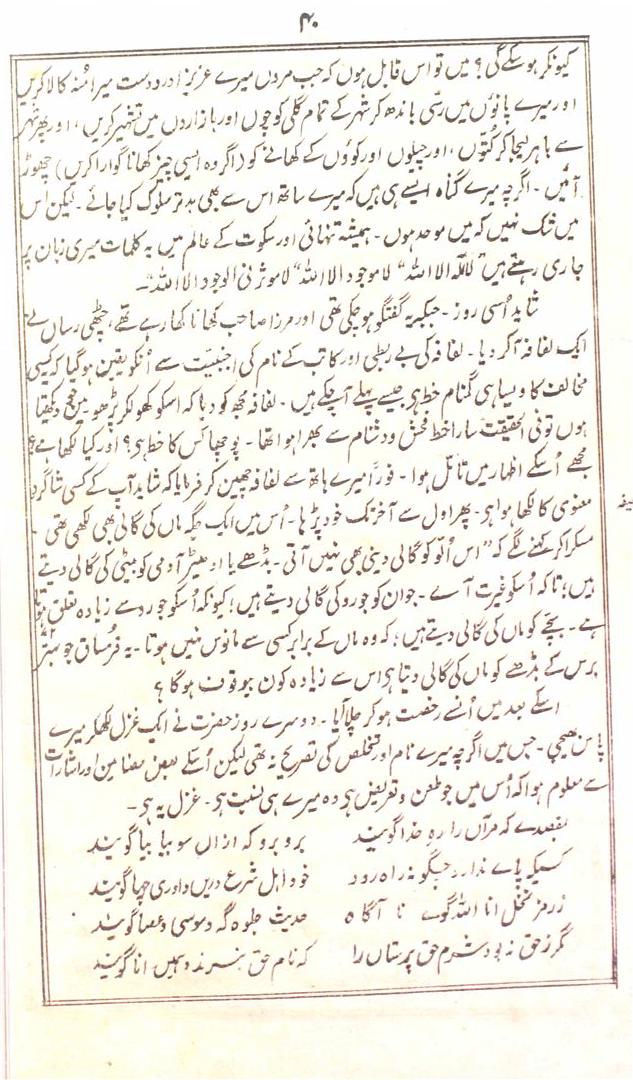 ۴۰
کیونکر ہوسکے گی؟ میں تو اس قابل ہوں کہ جب مروں میرے عزیز اور دوست میرا مُنہ کالا کریں
اور میرے پانوٗں میں رسّی باندھ کر شہر کے تمام گلی کوچوں اور بازاروں میں تشہیر کریں، اور پھر شہر
سے باہر لیجا کر کتّوں، اور چیلوں اور کوّوں کے کھانے کو (اگر وہ ایسی چیز کھانا گوارا کریں) چھوڑ
آئیں۔ اگرچہ میرے گناہ ایسے ہی ہیں کہ میرے ساتھ اس سے بھی بدتر سلوک کیا جائے۔ لیکن اس
میں شک نہیں کہ میں موحد ہوں۔ ہمیشہ تنہائی اور سکوت کے عالم میں یہ کلمات میری زبان پر
جاری رہتے ہیں "لاالٰہ الا اللہ" لا موجود الا اللہ" لا موثر فی الوجود الا اللہ"۔
شاید اُسی روز۔ جبکہ یہ گفتگو ہوچکی تھی اور مرزا صاحب کھانا کھا رہے تھے، چٹھی رساں نے
ایک لفافہ آکر دیا۔ لفافہ کی بے ربطی اور کاتب کے نام کی اجنبیّت سے اُنکو یقین ہوگیا کہ کسی
مخالف کا ویسا ہی گمنام خط ہی جیسے پہلے آچکے ہیں۔ لفافہ مجھ کو دیا کہ اسکو کھولکر پڑھو۔ میں جو دیکھتا
ہوں تو فی الحقیقت سارا خط فحش و دشنام سے بھرا ہوا تھا۔ پوچھا کس کا خط ہی؟ اور کیا لکھا ہی؟
مجھے اُسکے اظہار میں تامّل ہوا۔ فوراً میرے ہاتھ سے لفافہ چھین کر فرمایا کہ شاید آپ کے کسی شاگرد
معنوی کا لکھا ہوا ہی۔ پھر اول سے آخر تک خود پڑھا۔ اُس میں ایک جگہ ماں کی گالی بھی لکھی تھی۔
مسکرا کر کہنے لگے کہ "اس اُلّو کو گالی دینی بھی نہیں آتی۔ بڈھے یا ادھیڑ آدمی کو بیٹی کی گالی دیتے
ہیں؛ تاکہ اُسکو غیرت آے۔ جوان کو جورو کی گالی دیتے ہیں؛ کیونکہ اُسکو جورو سے زیادہ تعلق ہوتا
ہے۔ بچّے کو ماں کی گالی دیتے ہیں؛ کہ وہ ماں کے برابر کسی سے مانوس نہیں ہوتا۔ یہ قُرمساق جو بہتر
برس کے بڈھے کو ماں کی گالی دیتا ہی اس سے زیادہ کون بیوقوف ہوگا؟
اسکے بعد میں اُنسے رخصت ہوکر چلا آیا۔ دوسرے روز حضرت نے ایک غزل لکھکر میرے
پاس بھیجی۔ جس میں اگرچہ میرے نام اور تخلص کی تصریح نہ تھی لیکن اُسکے بعض مضامین اور اشارات
سے معلوم ہوا کہ اُس میں جو طعن و تعریض ہی وہ میرے ہی نسبت ہی۔ غزل یہ ہی۔
بمقصدے کہ مرآں را رہِ خدا گویند برو برو کہ ازاں سو بیا بیا گویند
کسیکہ پاے ندارد چگونہ راہ رود خود اہل شرع دریں داوری چہا گویند
ز رمزِ نخلِ انا اللہ گوے نا آگاہ حدیث جلوہ گہ و موسیٰ و عصا گویند
گر ز حق نہ بود شرم حق پرستاں را کہ نام حق نبرند و ہمیں انا گویند